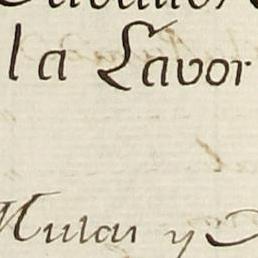 la Lavor
Mulas y